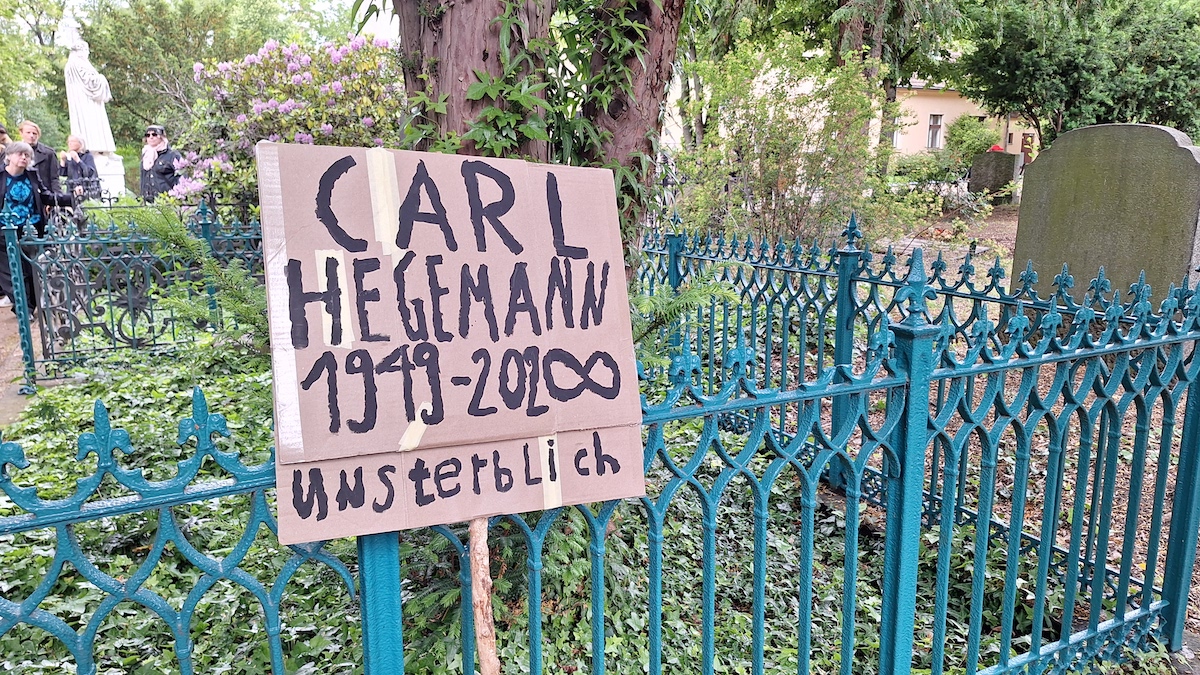 CARL
HEGEMANN
1949-202∞
UNsterbLich